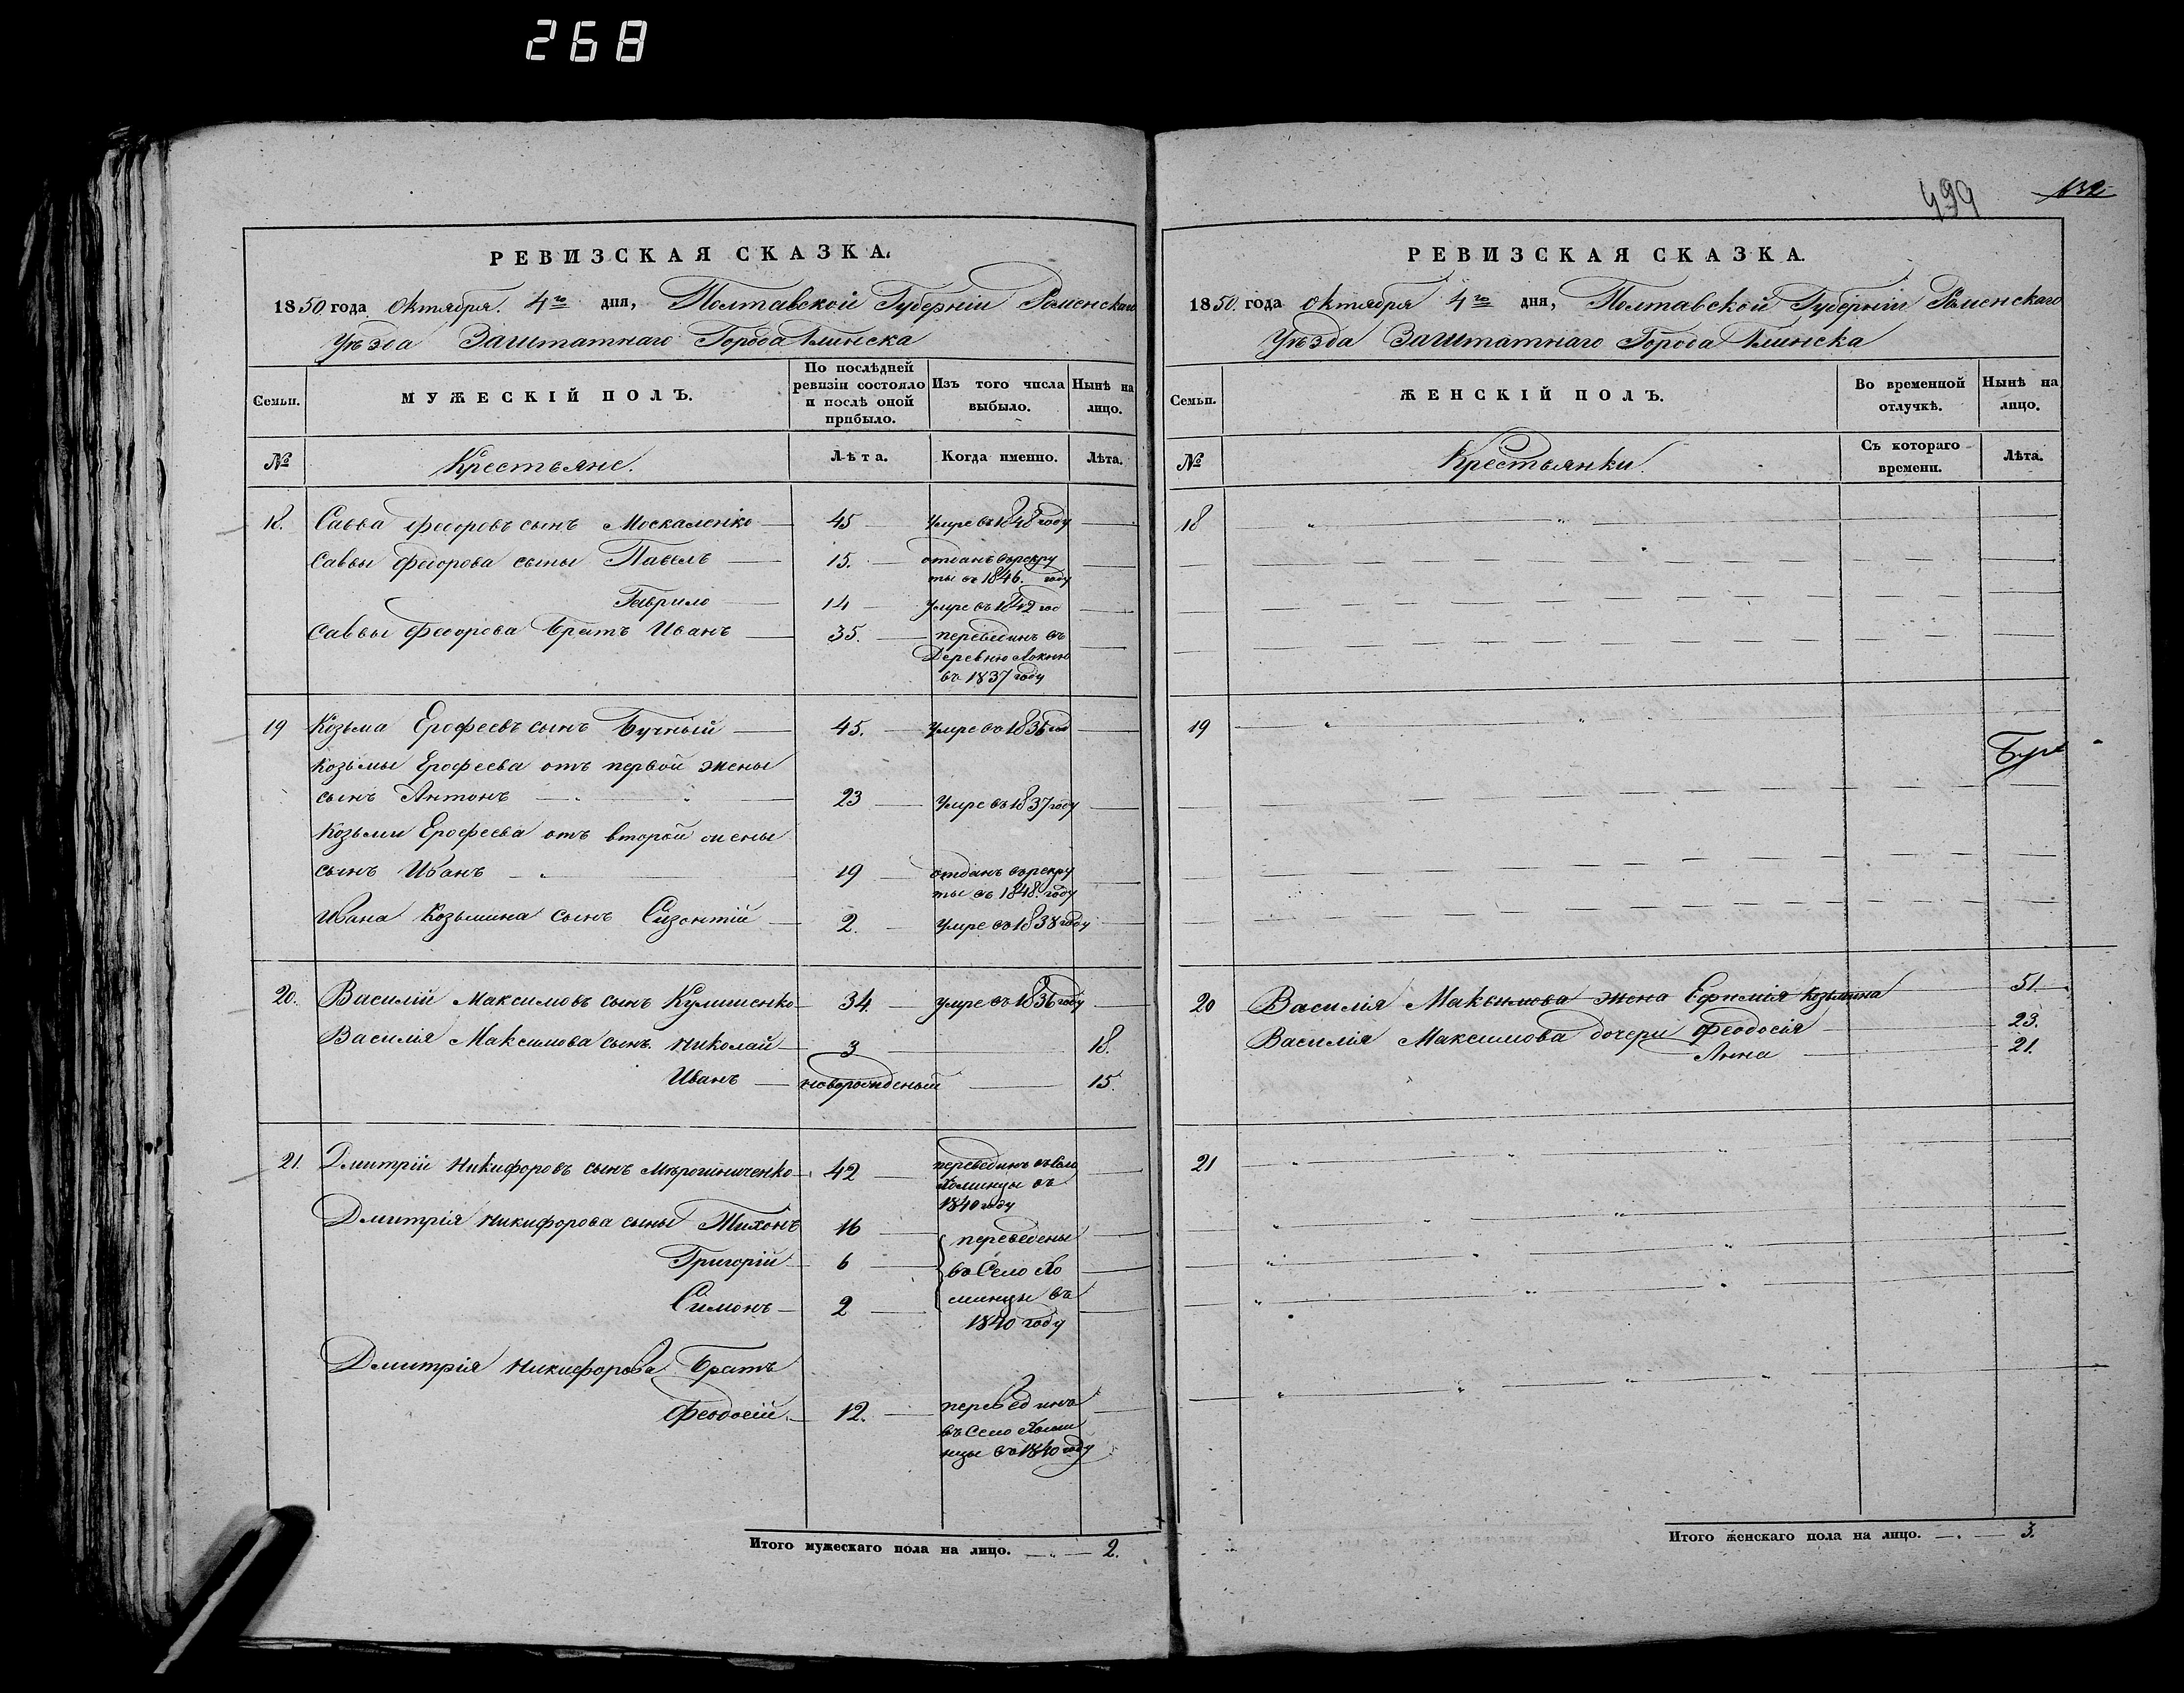 268
РЕВИЗСКАЯ СКАЗКА.
1850 года Октября 4го дня, Полтавской Губерніи Роменскаго
Уѣзда Заштатнаго Города Глинска
Семьи.
МУЖЕСКІЙ ПОЛЪ.
По послѣдней
ревизіи состояло
и послѣ оной
прибыло.
Изъ того числа
выбыло.
Нынѣ на
лицо.
№
Крестьяне.
Лѣта.
Когда именно.
Лѣта.
18. Савва Федоровъ сынъ Москаленко 45 умре въ 1848 году
Саввы Федорова сыны Павелъ 15. отданъ врекру
ты въ 1846. году
Гаврило 14 умре въ 1842 год
Саввы Федорова Братъ Иванъ 35. перевединъ въ
Деревню Локню
въ 1837 году
19 Козьма Ерофеевъ сынъ Бучный 45. умре въ 1836 год
Козьмы Ерофеева отъ первой жены
сынъ Антонъ 23 умре въ 1837 году
Козьми Ерофеева отъ второй жены
сынъ Иванъ 19 отданъ врекру
ты въ 1848. году
Ивана Козьмина сынъ 2. умре въ 1838 году
20. Василій Максимовъ сынъ Кулишенко 34. умре въ 1836 году
Василія Максимова сынъ Николай 3 18.
Иванъ новорожденый 15.
21. Дмитрій Никифоровъ сынъ 42 перевединъ въ Село
Хоминцы въ
1840 году
Дмитрія Никифорова сыны Тихонъ 16 переведены
Григорій 6 въ Село Хо
Симонъ 2 минцы въ
1840 году
Дмитрія Никифорова Братъ
Феодосій. 12. перевединъ
въ Село Хоми
нцы въ 1840 году
Итого мужескаго пола на лицо. 2.
499 132
РЕВИЗСКАЯ СКАЗКА.
1850. года Октября 4го дня, Полтавской Губерніи Роменскаго
Уѣзда Заштатнаго Города Глинска
Семьи.
ЖЕНСКІЙ ПОЛЪ.
Во временной
отлучкѣ.
Нынѣ на
лицо.
№
Крестьянки.
Съ котораго
времени.
Лѣта.
18
19
20 Василія Максимова жена Ефимія Козьмина 51.
Василія Максимова дочери Феодосія 23.
Анна 21.
21
Итого женскаго пола на лицо. 3.